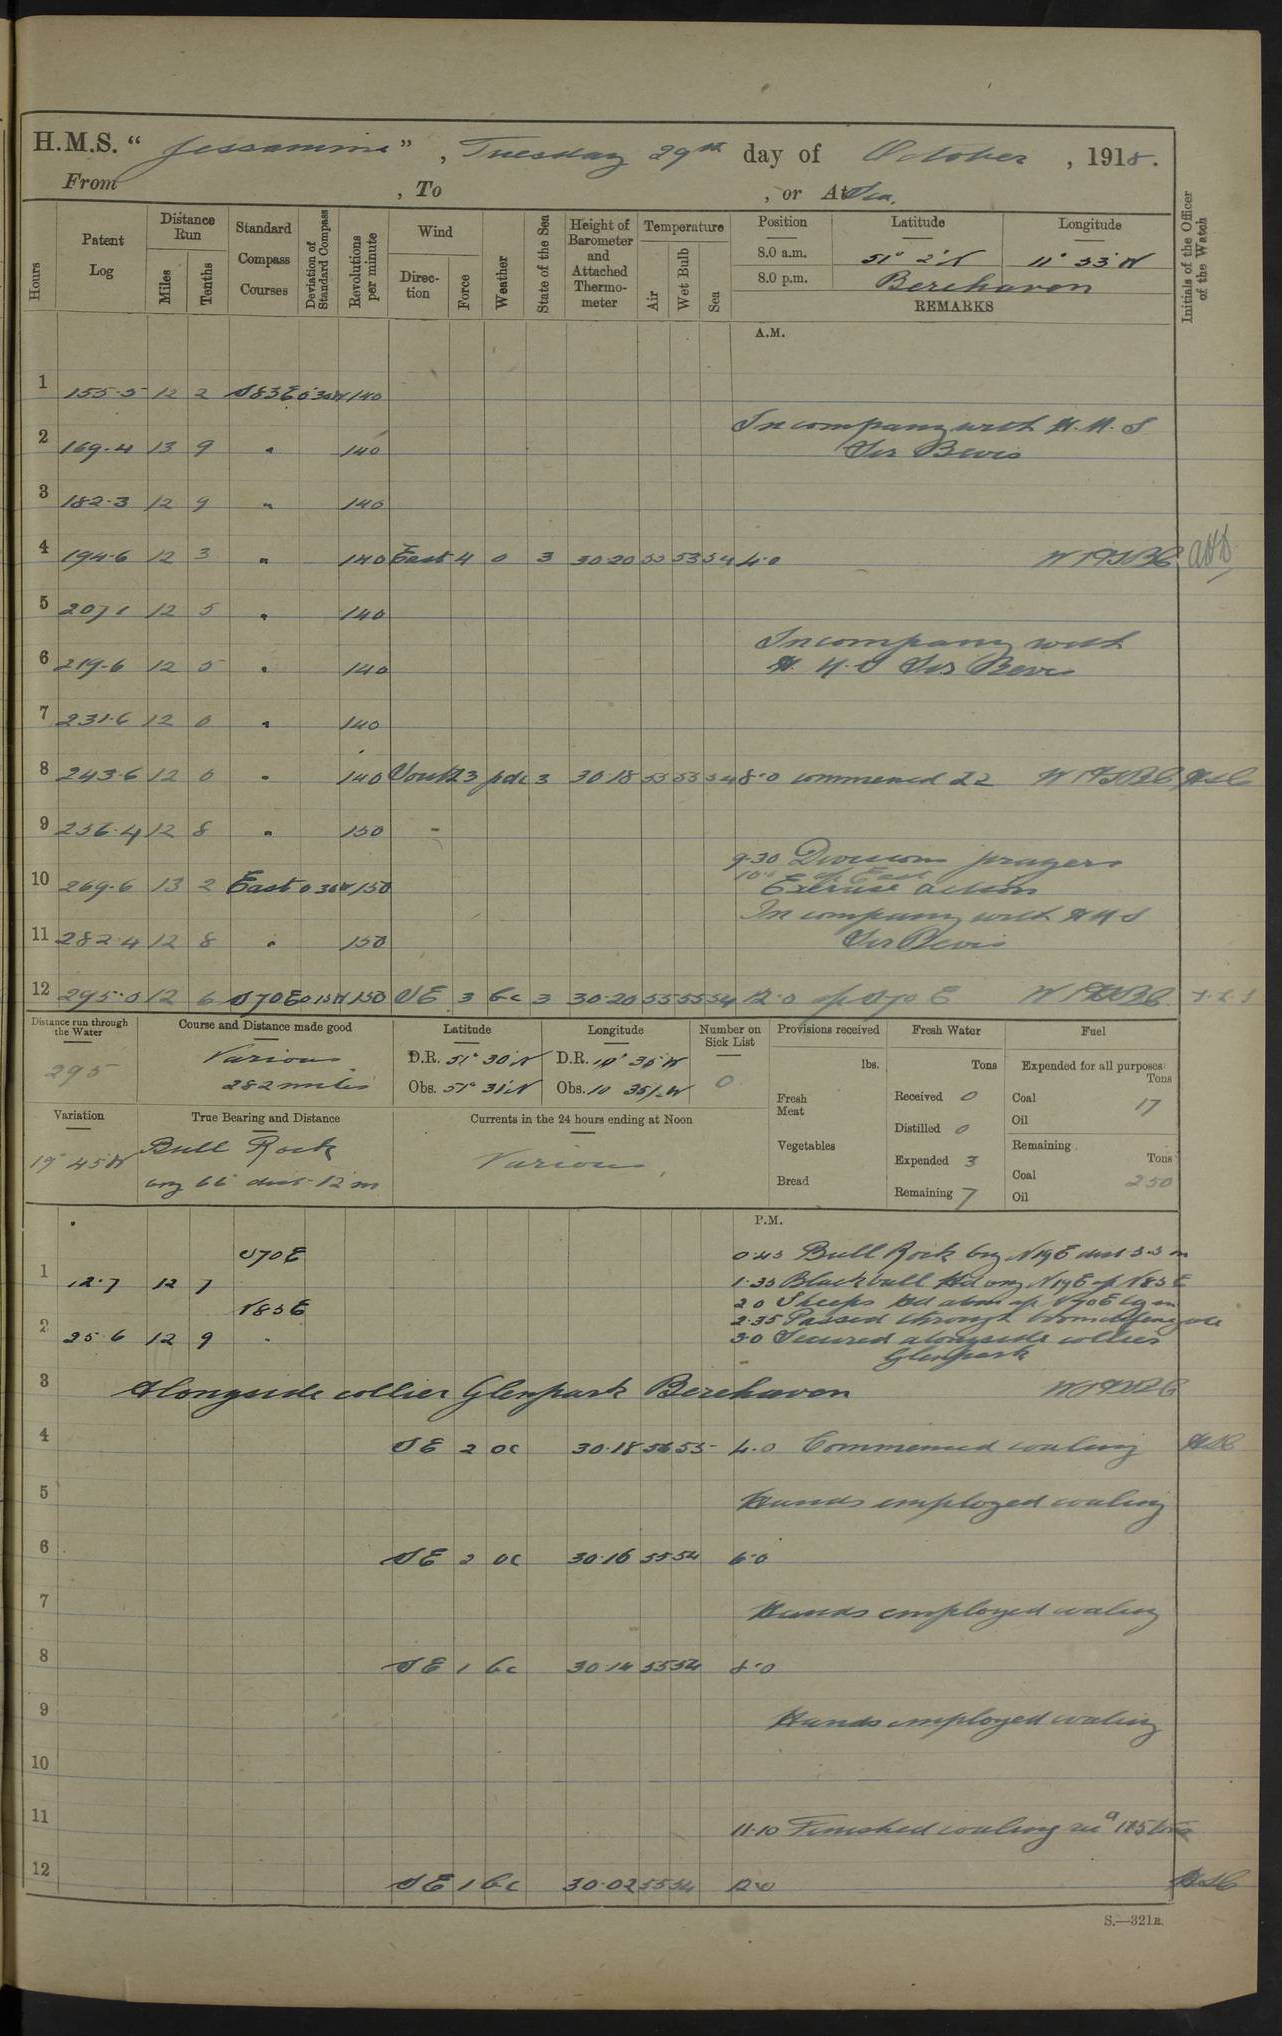 H.M.S. "Jessamine", Tuesday 29th day of October, 1918.
From , To , or At Sea.
Hours
Patent Log
Distance Run
Miles
Tenths
Standard Compass Courses
Deviation of Standard Compass
Revolutions per minute
Wind
Direction
Force
Weather
State of the Sea
Height of Barometer and Attached Thermometer
Temperature
Air
Wet Bulb
Sea
Position Latitude Longitude
8.0 a.m. 51° 2' N 11° 33' W
8.0 p.m. Berehaven
REMARKS
Initials of the Officer of the Watch
A.M.
1 155.5 12 2 S83E 0 30W 140
In company with H.M.S
2 169.4 13 9 " 140 Sir Bevis
3 182.3 12 9 " 140
4 194.6 12 3 " 140 East 4 o 3 30.20 53 53 54 4.0
5 207.1 12 5 " 140
In company with
6 219.6 12 5 " 140 H.M.S Sir Bevis
7 231.6 12 0 " 140
8 243.6 12 0 " 140 South 3 3 30.18 53 53 54 8.0 commenced 22
9 256.4 12 8 " 150
9.30 Divisions prayers
10.0 a/c East
10 269.6 13 2 East 0 30W 150 Exercise action
In company with HMS
11 282.4 12 8 " 150 Sir Bevis
12 295.0 12 6 S70E 0 15W 150 SE 3 bc 3 30.20 55 55 54 12.0 a/c S70E
Distance run through the Water
295
Course and Distance made good
Various
282 miles
Latitude
D.R. 51° 30' N
Obs. 51° 31' N
Longitude
D.R. 10° 35' W
Obs. 10 35½ W
Number on Sick List
0
Provisions received
lbs.
Fresh Meat
Vegetables
Bread
Fresh Water
Tons
Received 0
Distilled 0
Expended 3
Remaining 7
Fuel
Expended for all purposes
Tons
Coal 17
Oil
Remaining
Tons
Coal 250
Oil
Variation
19° 45' W
True Bearing and Distance
Bull Rock
brg 66° dist 12 m
Currents in the 24 hours ending at Noon
Various
P.M.
S70E 0.45 Bull Rock brg N19E dist 3.3 m
1 12.7 12 7 1.35 Blackball Hd brg N19E a/c N83E
N83E 2.0 Sheeps Hd abm a/c N70E
2.35 Passed through boom defence
2 25.6 12 9 " 3.0 Secured alongside collier
Glenpark
3 Alongside collier Glenpark Berehaven
4 SE 2 oc 30.18 56 55 4.0 Commenced coaling
5 Hands employed coaling
6 SE 2 oc 30.16 55 54 6.0
7 Hands employed coaling
8 SE 1 bc 30.14 55 54 8.0
9 Hands employed coaling
10
11 11.10 Finished coaling 175 tons
12 SE 1 bc 30.02 55 54 12.0
S.—321B.